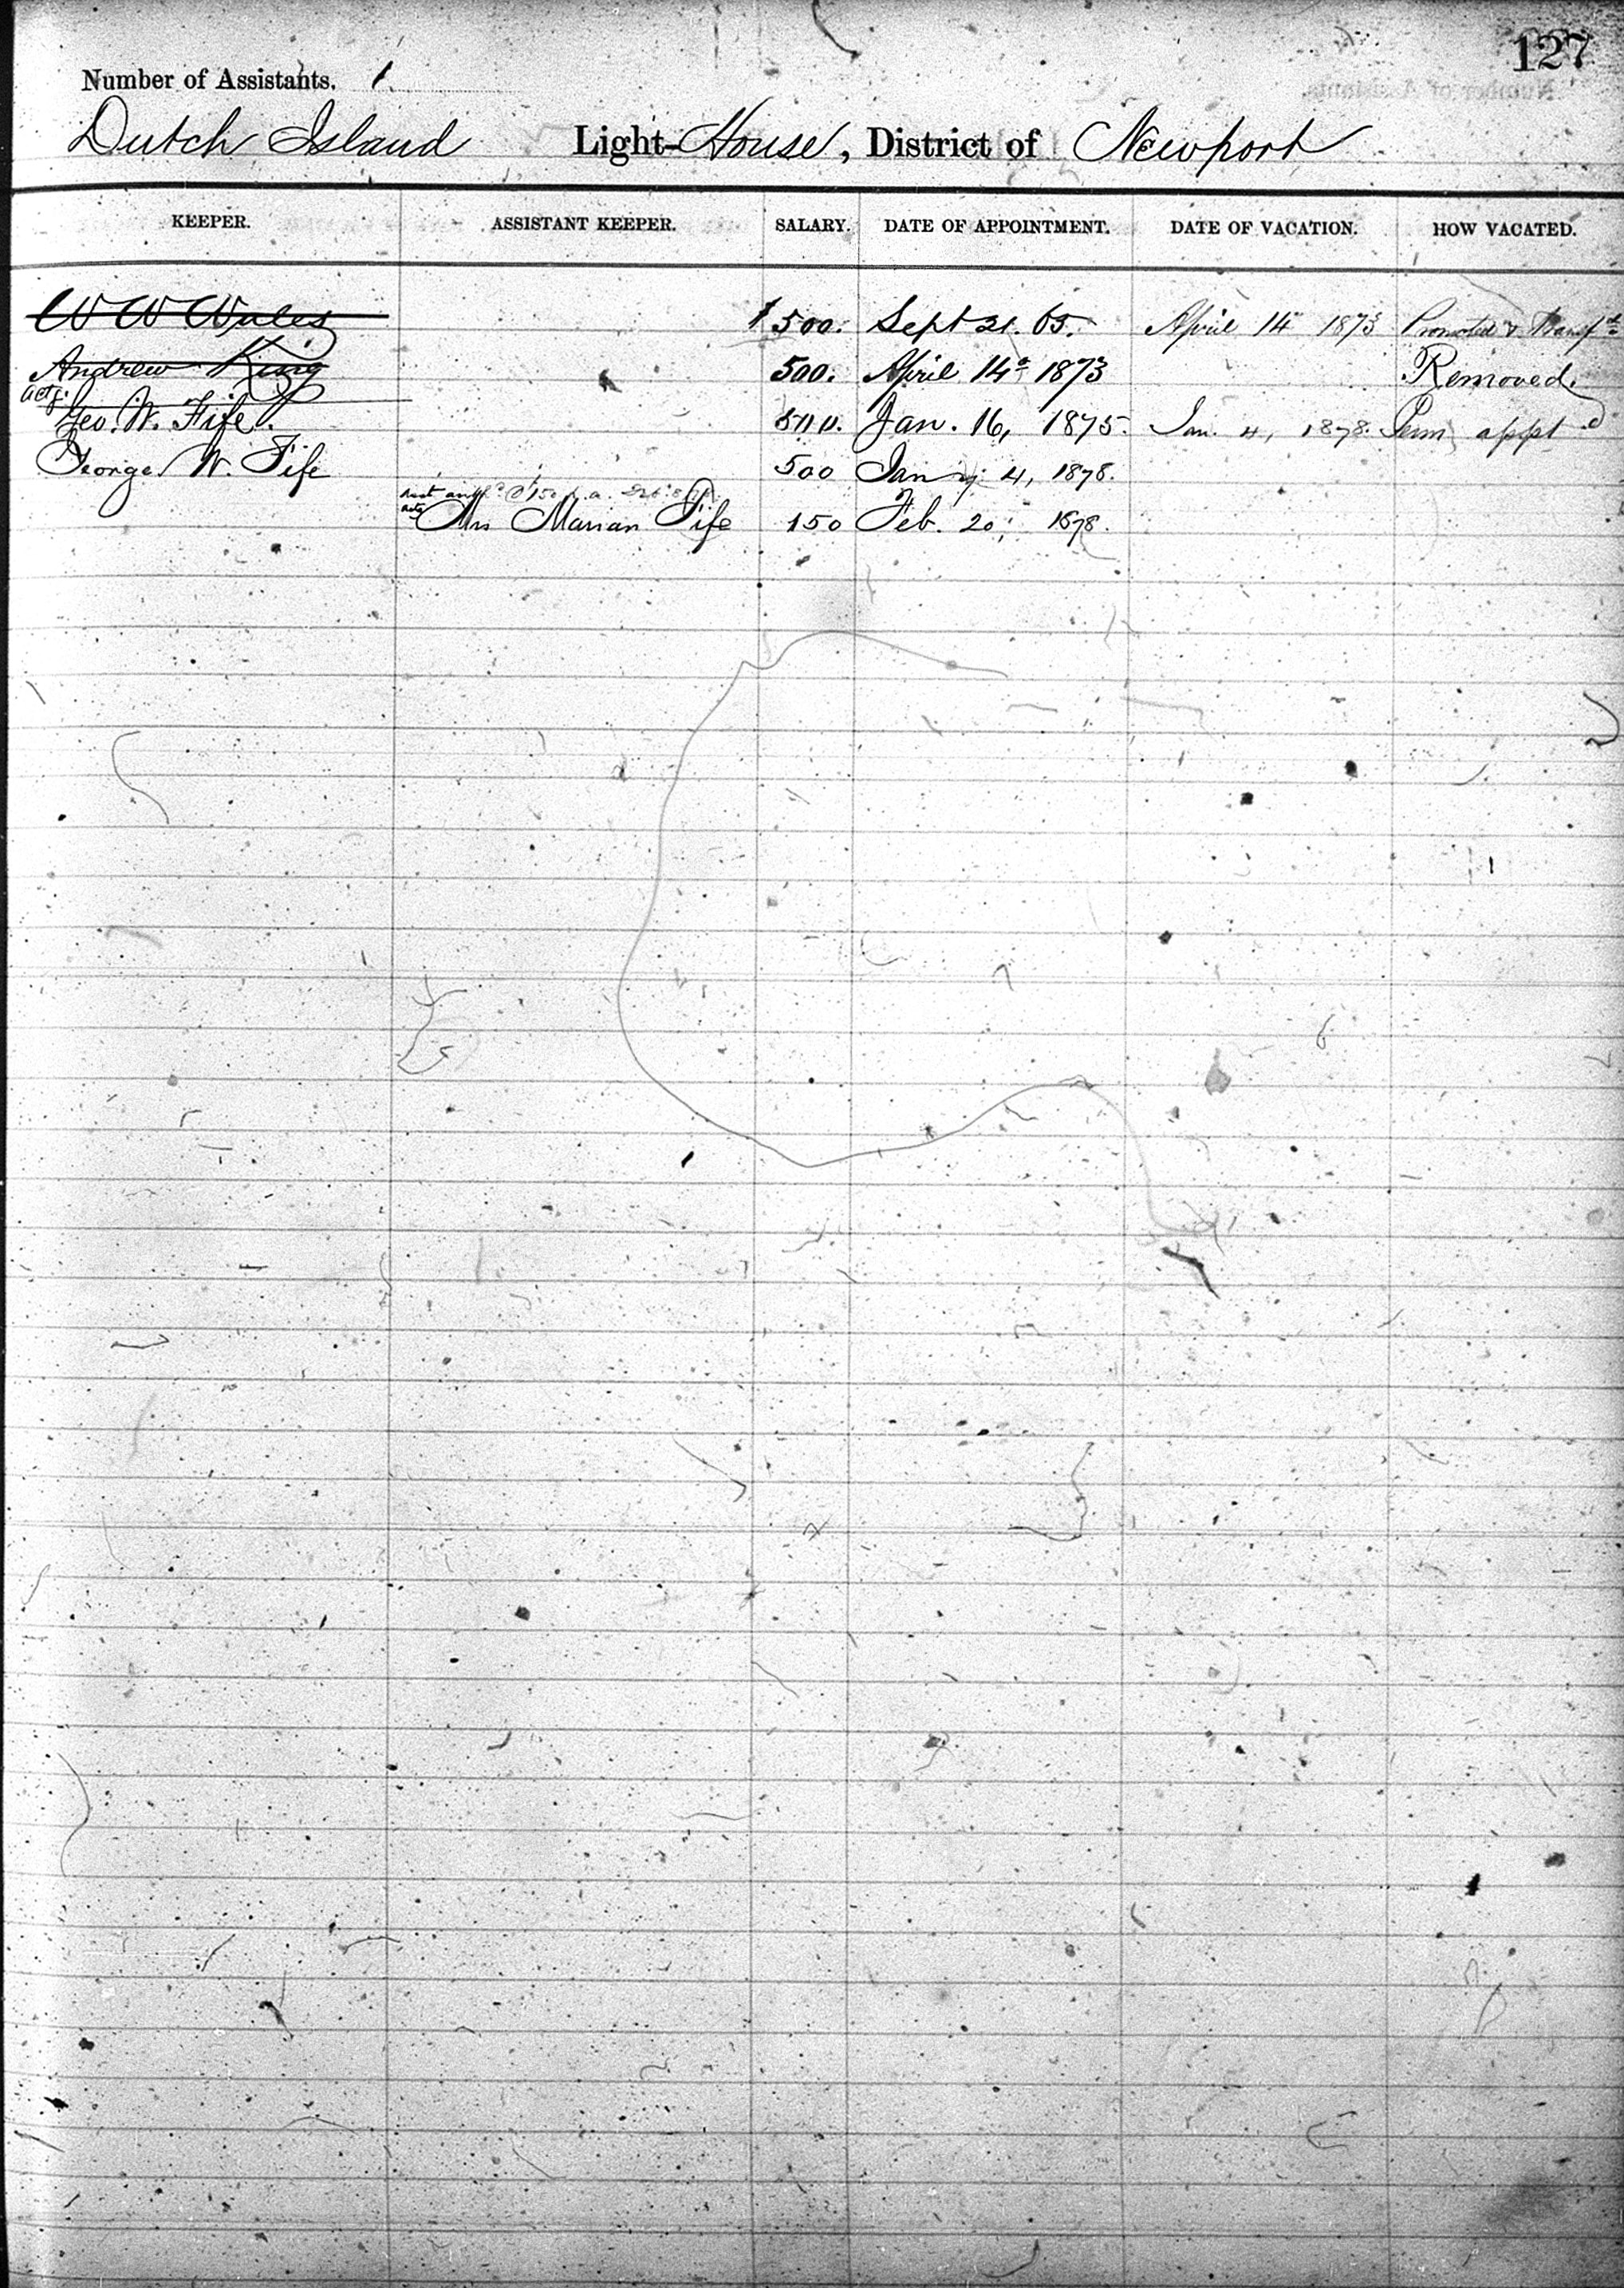 127
Number of Assistants. 1.
Dutch Island Light-House, District of Newport
KEEPER. ASSISTANT KEEPER. SALARY. DATE OF APPOINTMENT. DATE OF VACATION. HOW VACATED.
W W Wales $500. Sept 21. 65. April 14 1873 Promoted & Transf
Andrew King 500. April 14 1873 Removed.
actg.
Geo. W. Fife. 500. Jan. 16, 1875. Jan. 4, 1878. Perm appt d
George W. Fife 500 Jany 4, 1878.
asst p. a.
actg Mrs Marian Fife 150 Feb. 20, 1878.